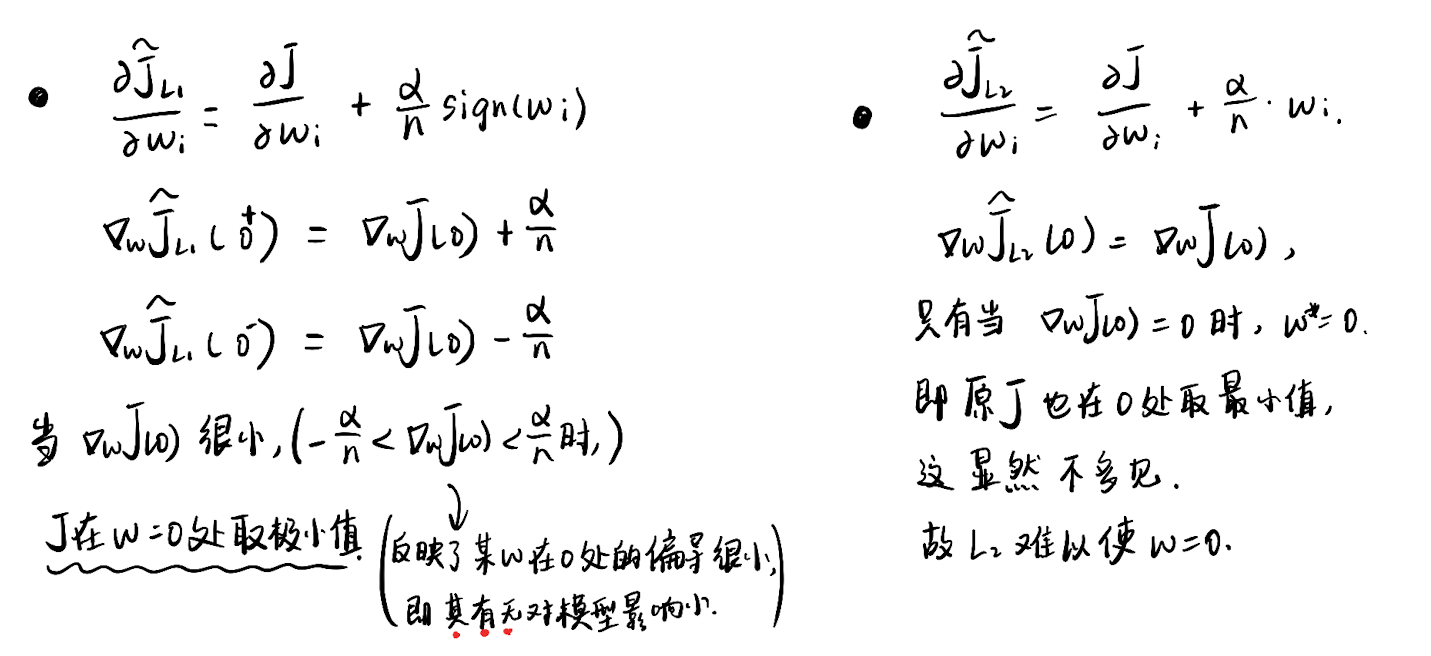 • ∂J̃_{L₁}/∂w_i = ∂J/∂w_i + α/n sign(w_i)
∇_w J̃_{L₁}(0⁺) = ∇_w J(0) + α/n
∇_w J̃_{L₁}(0⁻) = ∇_w J(0) - α/n
当 ∇_w J(0) 很小，(-α/n < ∇_w J(0) < α/n 时，)
J在w=0处取极小值.
(反映了某w在0处的偏导很小，
即其有无对模型影响小.)
• ∂J̃_{L₂}/∂w_i = ∂J/∂w_i + α/n · w_i.
∇_w J̃_{L₂}(0) = ∇_w J(0)，
只有当 ∇_w J(0) = 0 时，w*=0.
即原J也在0处取最小值，
这显然不多见.
故L₂难以使w=0.